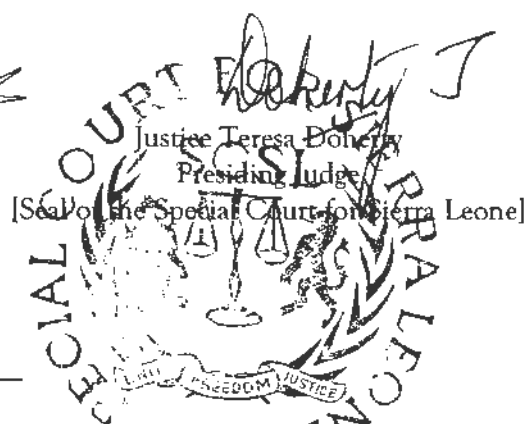 Doherty J
Justice Teresa Doherty
Presiding Judge
[Seal of the Special Court for Sierra Leone]
SPECIAL COURT FOR SIERRA LEONE
SCSL
FREEDOM JUSTICE